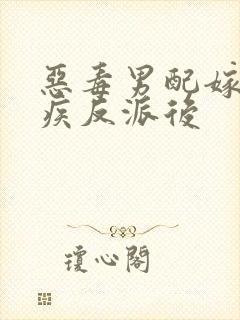 惡毒男配嫁
疾反派後
瓊心閣